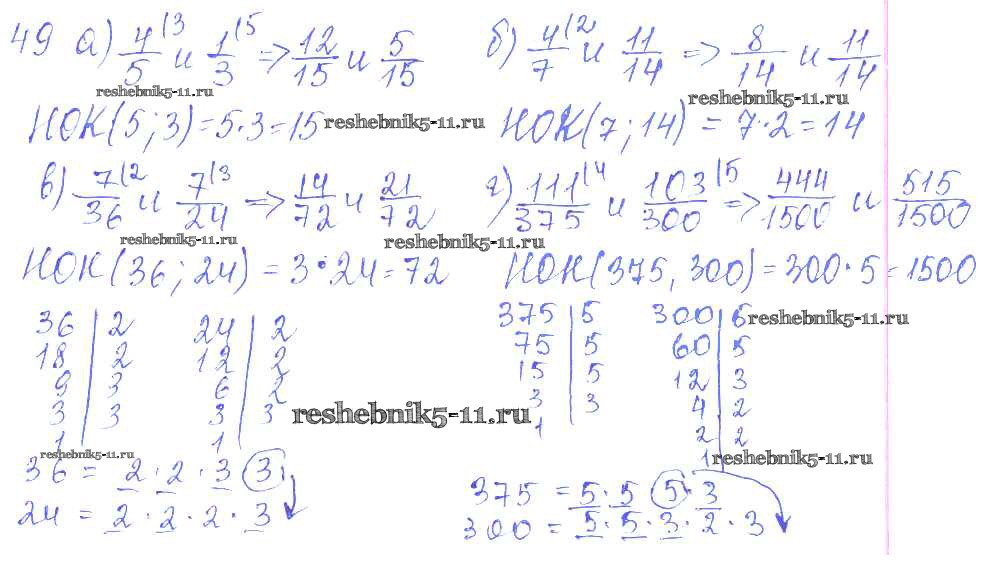 49 а) 4/5 (3 и 1/3 (5 => 12/15 и 5/15
reshebnik5-11.ru
НОК(5; 3) = 5·3 = 15 reshebnik5-11.ru
б) 4/7 (2 и 11/14 => 8/14 и 11/14
reshebnik5-11.ru
НОК(7; 14) = 7·2 = 14
в) 7/36 (2 и 7/24 (3 => 14/72 и 21/72
reshebnik5-11.ru
НОК(36; 24) = 3·24 = 72
г) 111/375 (4 и 103/300 (5 => 444/1500 и 515/1500
reshebnik5-11.ru
НОК(375, 300) = 300·5 = 1500
36 | 2 24 | 2
18 | 2 12 | 2
9 | 3 6 | 2
3 | 3 3 | 3
1 1
reshebnik5-11.ru
reshebnik5-11.ru
36 = 2 · 2 · 3 (3)
24 = 2 · 2 · 2 · 3
375 | 5 300 | 5 reshebnik5-11.ru
75 | 5 60 | 5
15 | 5 12 | 3
3 | 3 4 | 2
1 2 | 2
1 reshebnik5-11.ru
375 = 5 · 5 (5) · 3
300 = 5 · 5 · 3 · 2 · 3